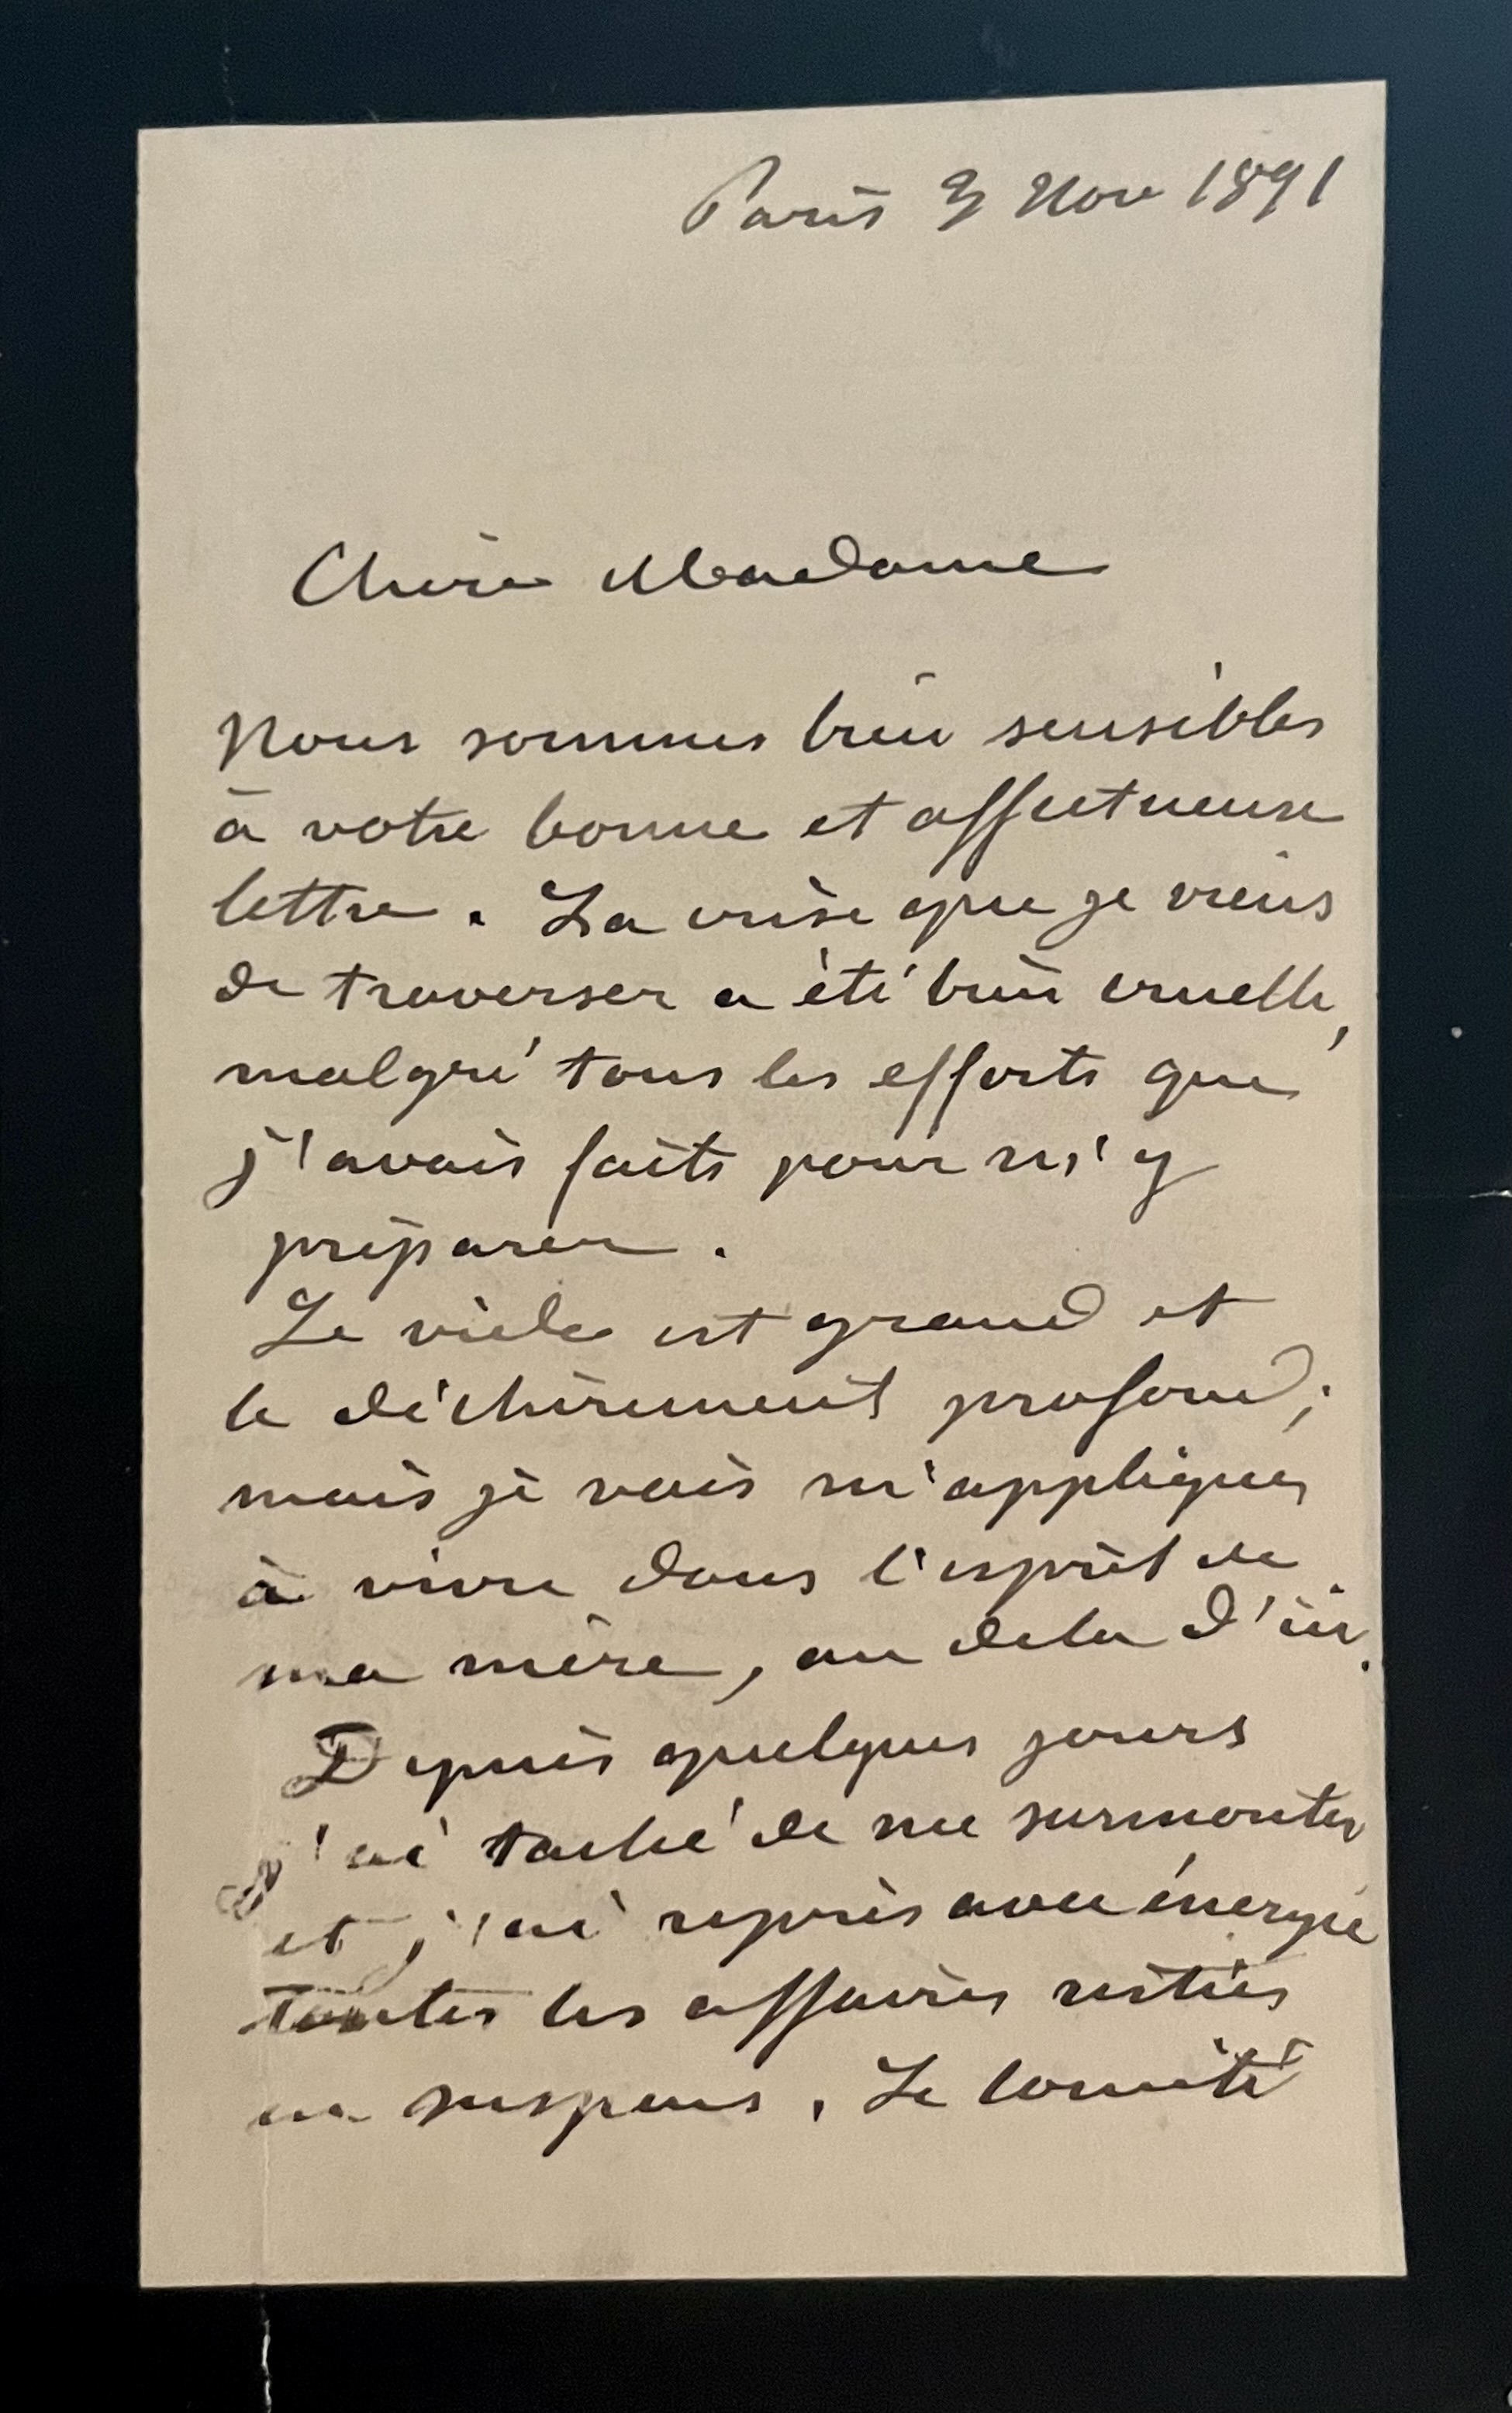 Paris 3 Nov 1891
Chère Madame
Nous sommes bien sensibles
à votre bonne et affectueuse
lettre. La crise que je viens
de traverser a été bien cruelle,
malgré tous les efforts que
j'avais faits pour m'y
préparer.
Le vide est grand et
le déchirement profond;
mais je vais m'appliquer
à vivre dans l'esprit de
ma mère, au dela d'ici.
Depuis quelques jours
j'ai taché de me surmonter
et j'ai repris avec énergie
toutes les affaires restées
en suspens. Le Comité